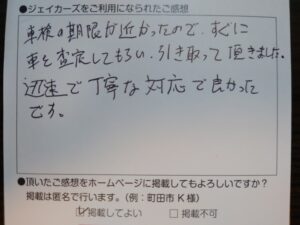 ●ジェイカーズをご利用になられたご感想
車検の期限が近かったので、すぐに
車を査定してもらい、引き取って頂きました。
迅速で丁寧な対応で良かった
です。
●頂いたご感想をホームページに掲載してもよろしいですか？
掲載は匿名で行います。（例：町田市 K 様）
☑掲載してよい　□掲載不可